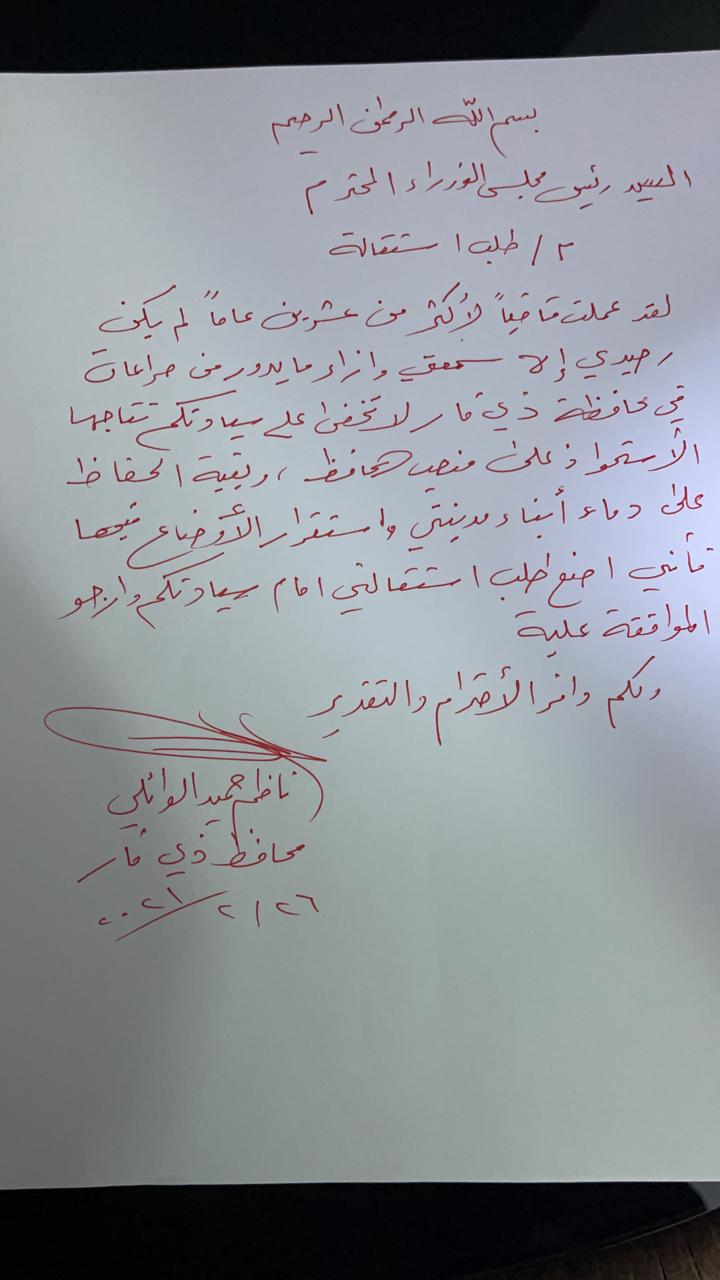 بسم الله الرحمن الرحيم
السيد رئيس مجلس الوزراء المحترم
م / طلب استقالة
لقد عملت قاضياً لأكثر من عشرين عاماً لم يكن
رصيدي إلا سمعتي وازاء ما يدور من صراعات
في محافظة ذي قار لا تخفى على سيادتكم نتاجها
الأستحواذ على منصب المحافظ ، وبغية الحفاظ
على دماء أبناء مدينتي واستقرار الأوضاع فيها
فأني اضع طلب استقالتي امام سيادتكم وارجو
الموافقة علية
ولكم وافر الأحترام والتقدير
ناظم حميد الوائلي
محافظ ذي قار
٢٠٢١/٢/٢٦